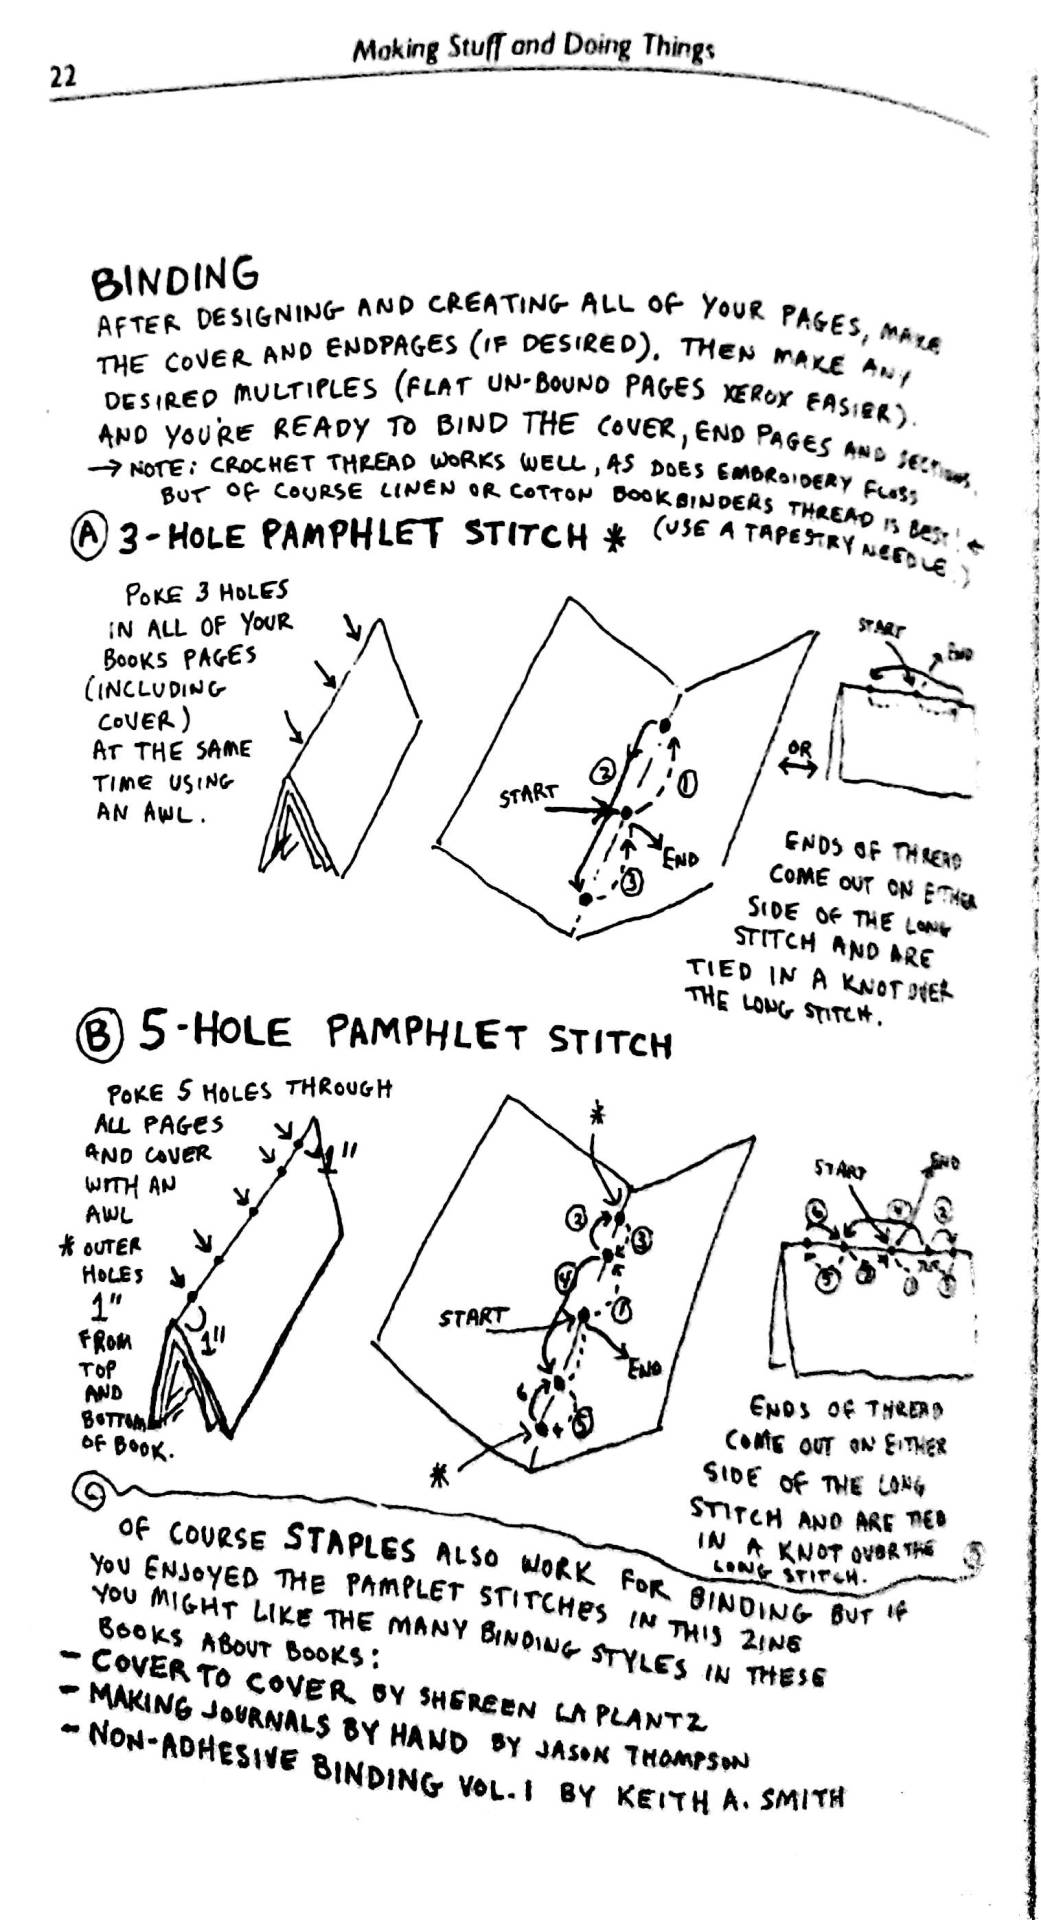 22
Making Stuff and Doing Things
BINDING
AFTER DESIGNING AND CREATING ALL OF YOUR PAGES, MAKE
THE COVER AND ENDPAGES (IF DESIRED). THEN MAKE ANY
DESIRED MULTIPLES (FLAT UN-BOUND PAGES XEROX EASIER).
AND YOU'RE READY TO BIND THE COVER, END PAGES AND SECTIONS.
→ NOTE: CROCHET THREAD WORKS WELL, AS DOES EMBROIDERY FLOSS
BUT OF COURSE LINEN OR COTTON BOOKBINDERS THREAD IS BEST! ←
(A) 3-HOLE PAMPHLET STITCH * (USE A TAPESTRY NEEDLE.)
POKE 3 HOLES
IN ALL OF YOUR
BOOKS PAGES
(INCLUDING
COVER)
AT THE SAME
TIME USING
AN AWL.
START
2
1
3
END
OR
START
END
ENDS OF THREAD
COME OUT ON EITHER
SIDE OF THE LONG
STITCH AND ARE
TIED IN A KNOT OVER
THE LONG STITCH.
(B) 5-HOLE PAMPHLET STITCH
POKE 5 HOLES THROUGH
ALL PAGES
AND COVER
WITH AN
AWL
* OUTER
HOLES
1"
FROM
TOP
AND
BOTTOM
OF BOOK.
1"
1"
*
2
3
4
START
1
END
6
5
*
START
END
6
4
2
5
1
3
ENDS OF THREAD
COME OUT ON EITHER
SIDE OF THE LONG
STITCH AND ARE TIED
IN A KNOT OVER THE
LONG STITCH.
OF COURSE STAPLES ALSO WORK FOR BINDING BUT IF
YOU ENJOYED THE PAMPLET STITCHES IN THIS ZINE
YOU MIGHT LIKE THE MANY BINDING STYLES IN THESE
BOOKS ABOUT BOOKS:
- COVER TO COVER BY SHEREEN LA PLANTZ
- MAKING JOURNALS BY HAND BY JASON THOMPSON
- NON-ADHESIVE BINDING VOL. 1 BY KEITH A. SMITH